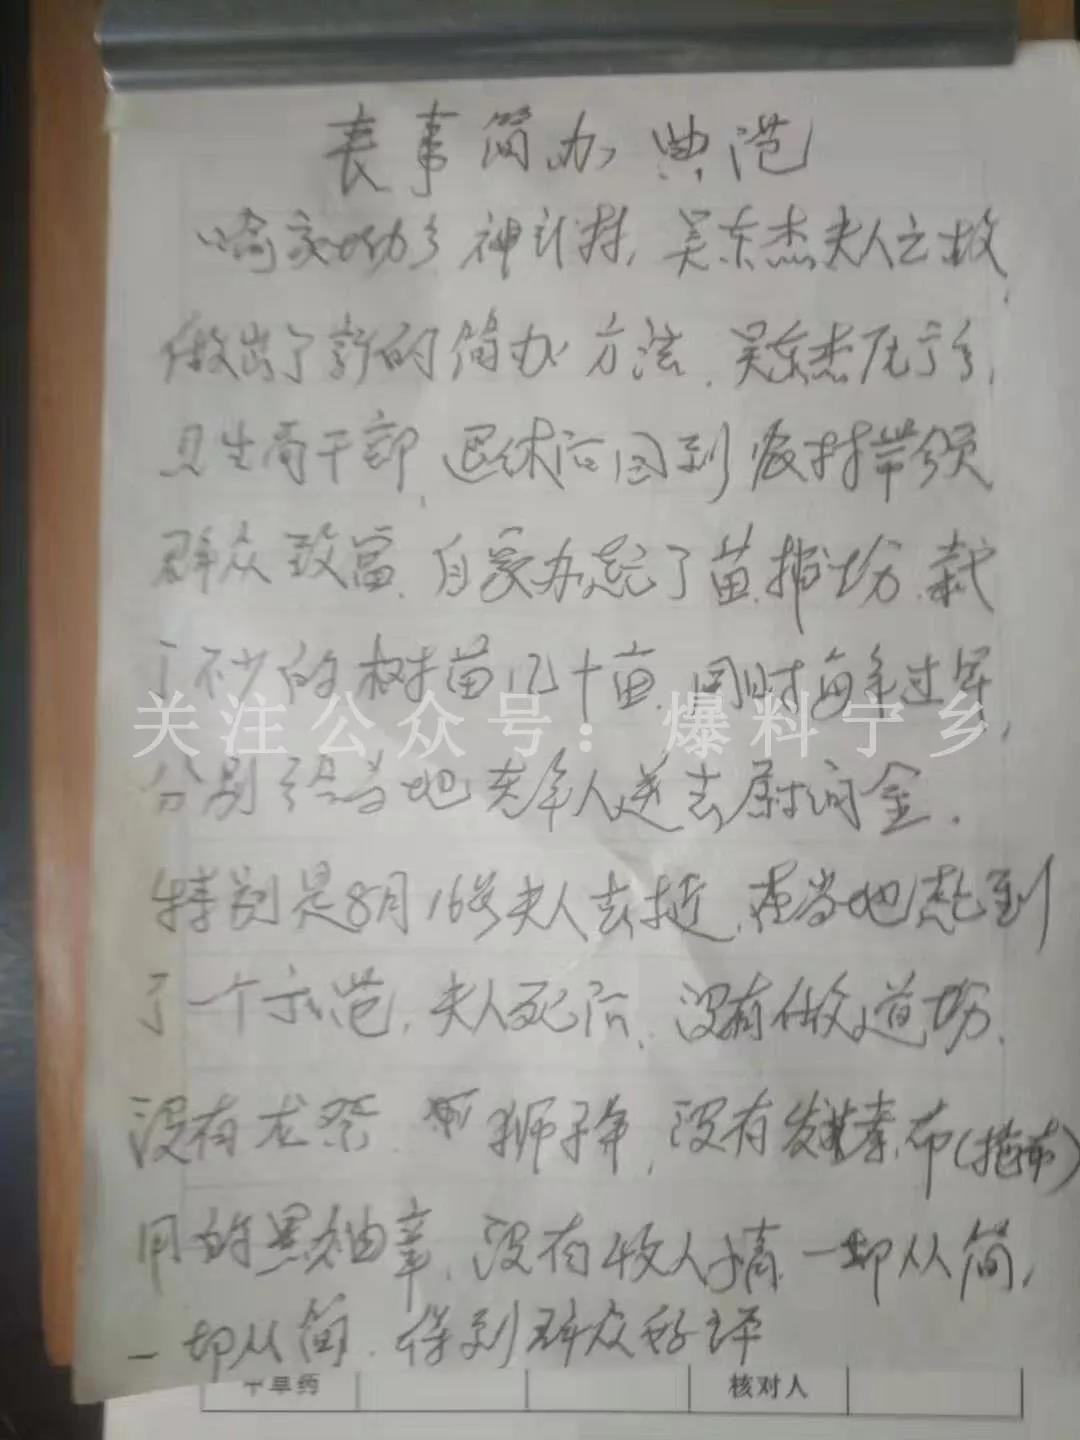 丧事简办典范
喻家坳乡神计村,吴东杰夫人之故,
做出了新的简办方法.吴东杰在宁乡,
卫生局干部,退休后回到农村带领
群众致富.自家办起了苗圃场.栽
了不少的树苗几十亩.同时每年过年,
关注公众号:爆料宁乡
分别给当地老年人送去慰问金.
特别是8月16号夫人去世,在当地起到
了一个示范,夫人死后,没有做道场.
没有龙祭.狮子舞,没有发孝布(拖布)
用的黑袖章,没有收人情.一切从简,
一切从简.得到群众好评
中草药
核对人